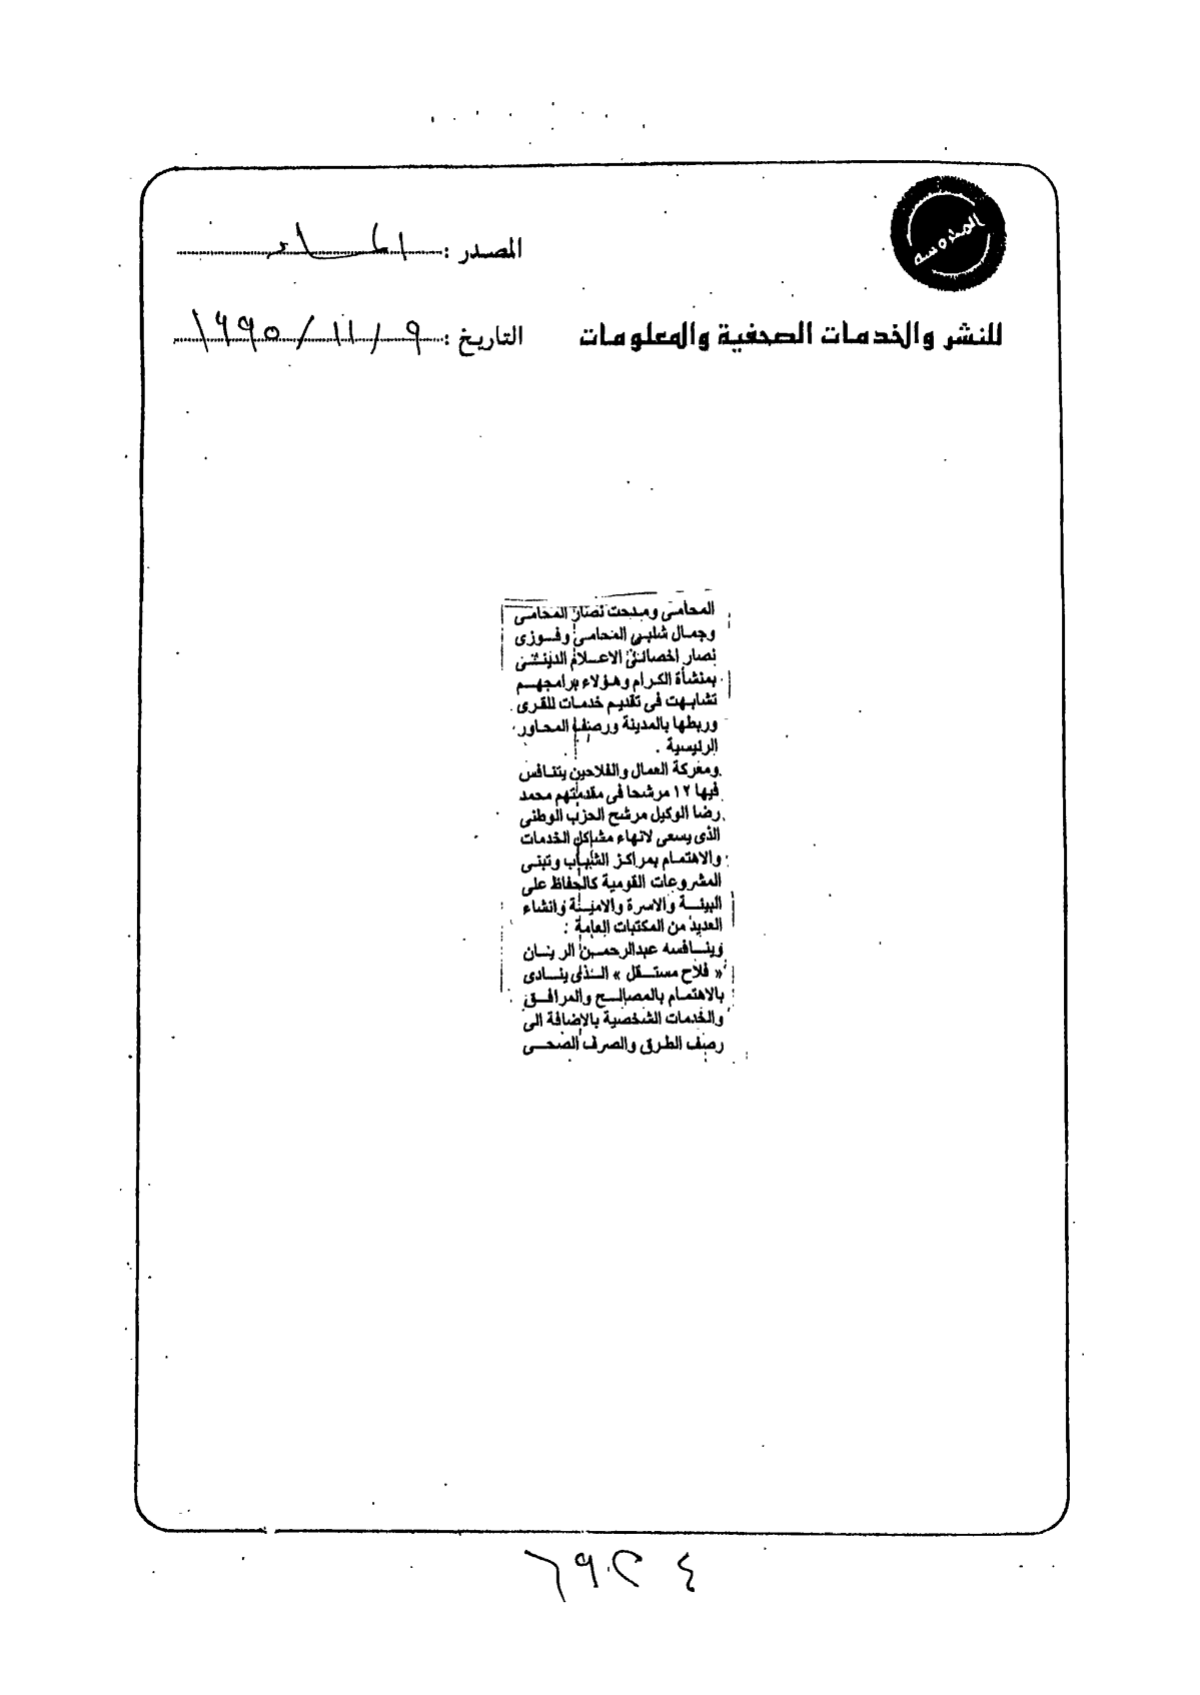 المحروسة
المصدر : المساء
للنشر والخدمات الصحفية والمعلومات
التاريخ : ٩ / ١١ / ١٩٩٥
المحامى ومدحت نصار المحامى
وجمال شلبى المحامى وفوزى
نصار اخصائى الاعلام الدينى
بمنشأة الكرام وهؤلاء برامجهم
تشابهت فى تقديم خدمات للقرى
وربطها بالمدينة ورصف المحاور
الرئيسية .
ومعركة العمال والفلاحين يتنافس
فيها ١٢ مرشحا فى مقدمتهم محمد
رضا الوكيل مرشح الحزب الوطنى
الذى يسعى لانهاء مشاكل الخدمات
والاهتمام بمراكز الشباب وتبنى
المشروعات القومية كالحفاظ على
البيئة والاسرة والامينة وانشاء
العديد من المكتبات العامة :
وينافسه عبدالرحمن الرينان
« فلاح مستقل » الذى ينادى
بالاهتمام بالمصالح والمرافق
والخدمات الشخصية بالإضافة الى
رصف الطرق والصرف الصحى